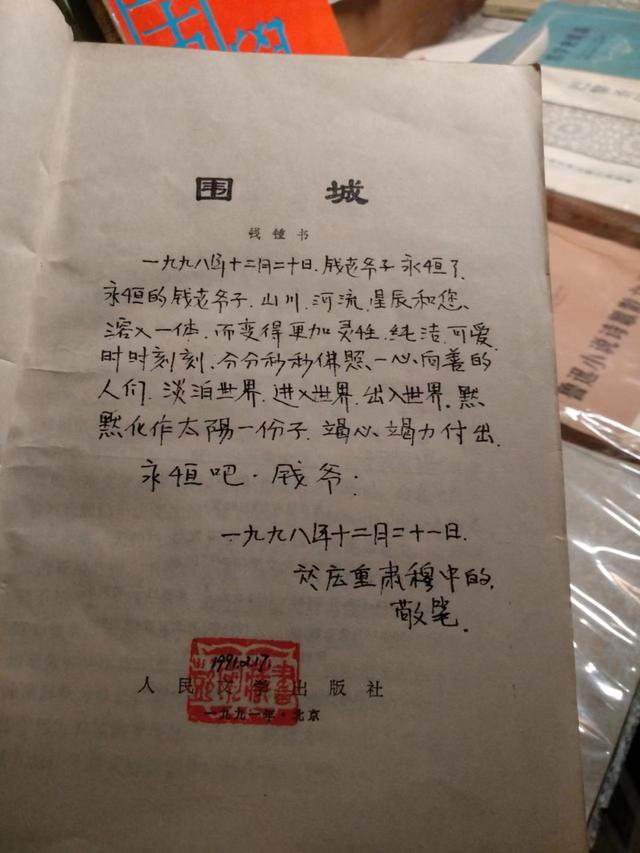 围城
钱锺书
一九九八年十二月二十日.钱老爷子永恒了
永恒的钱老爷子.山川.河流.星辰和您、
溶入一体.而变得更加灵性.纯洁.可爱
时时刻刻.分分秒秒佛照.一心向善的
人们.淡泊世界.进入世界.出入世界.默
默化作太阳一份子.竭心竭力付出.
永恒吧.钱爷.
一九九八年十二月二十一日.
於庄重肃穆中的.
敬笔.
1991.2.17.
人民文学出版社
一九九一年·北京
鲁迅小说诗歌散文